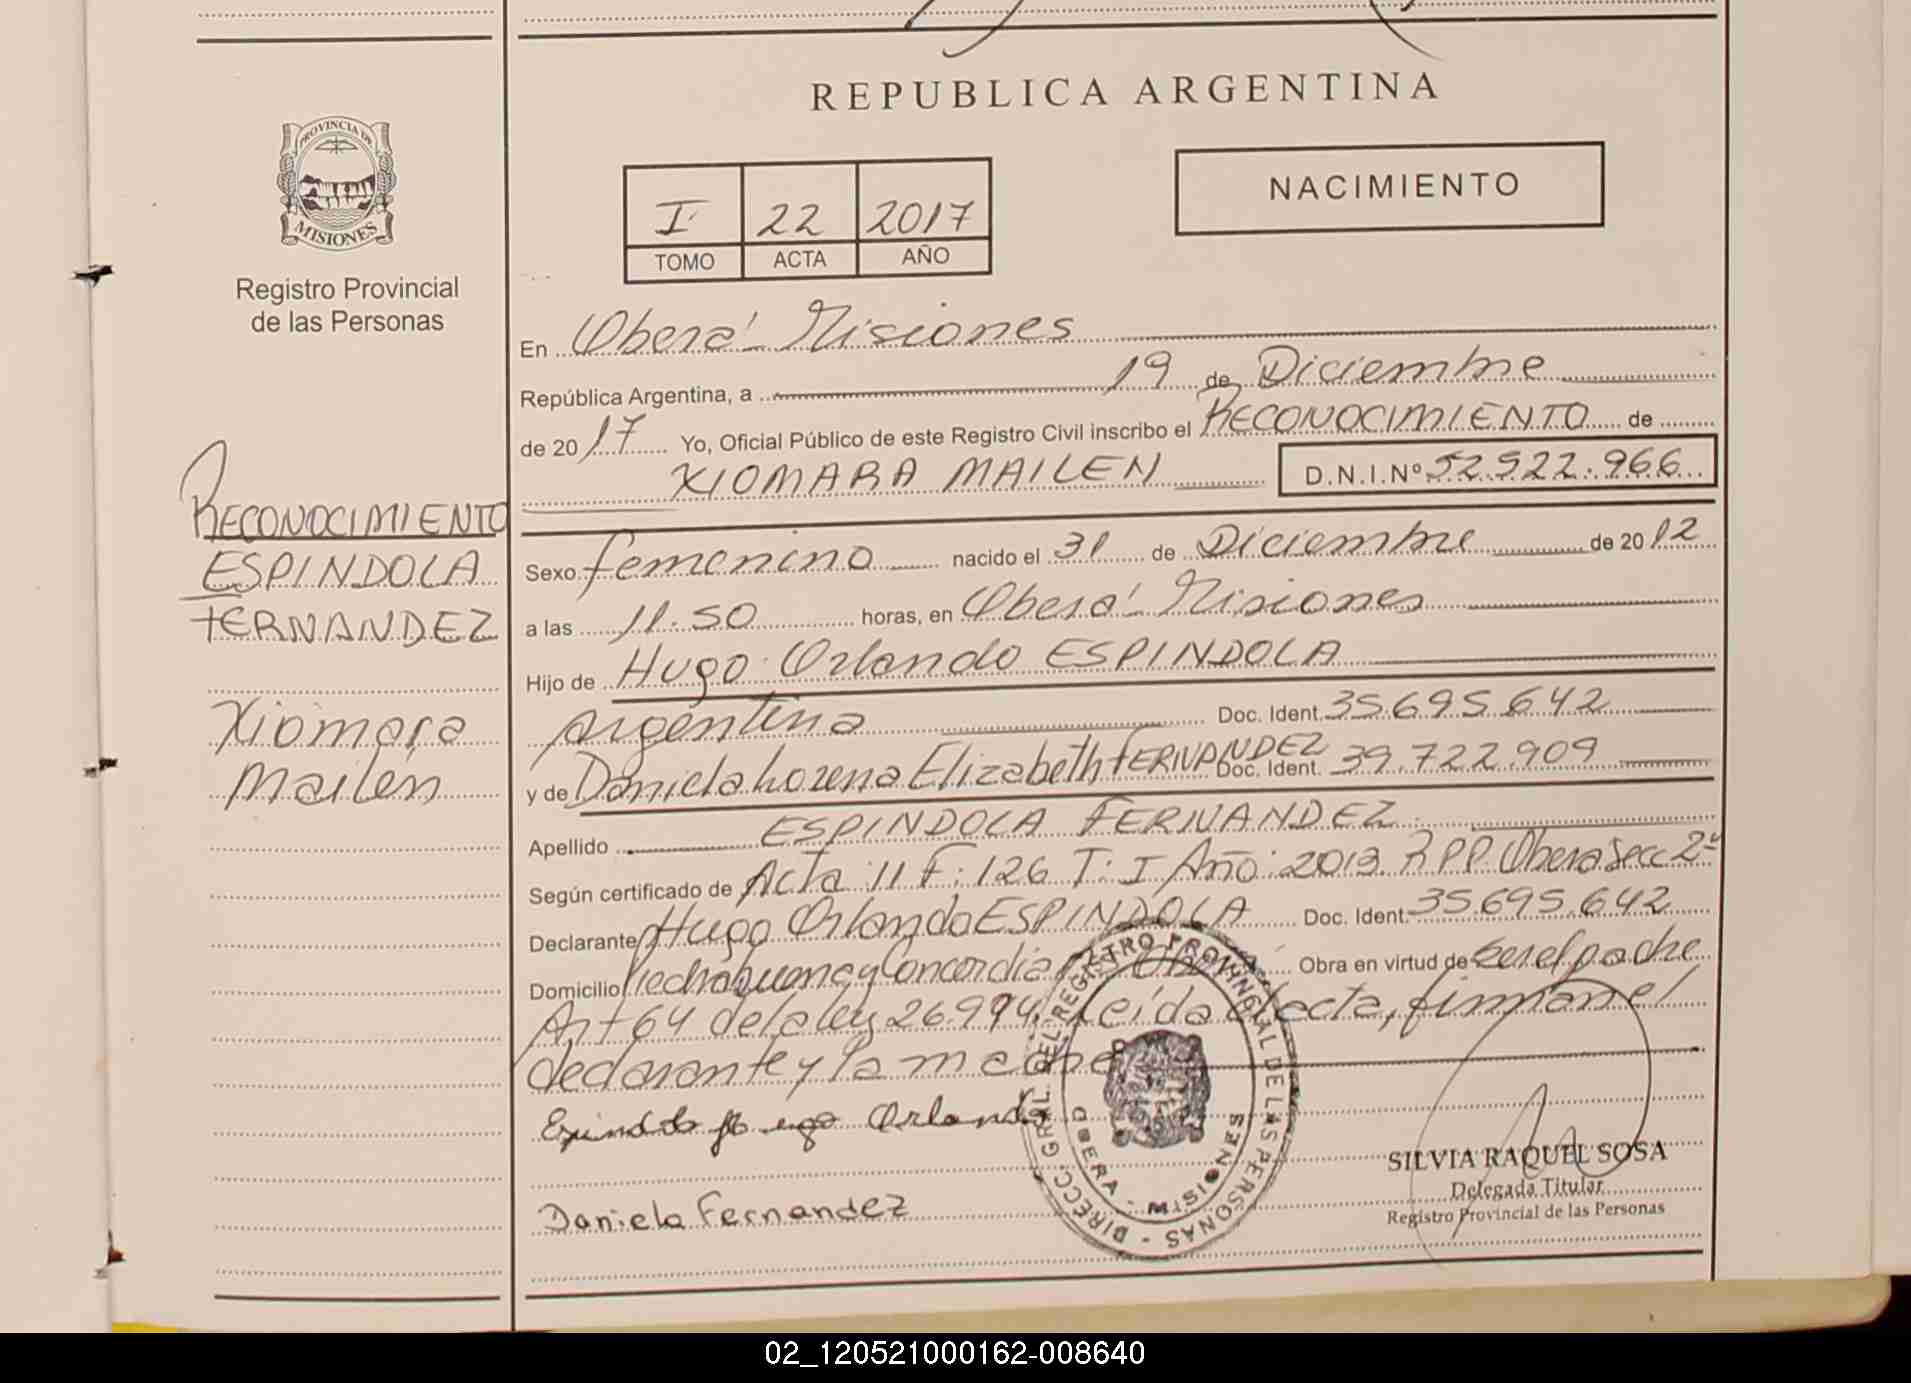 REPUBLICA ARGENTINA
NACIMIENTO
I 22 2017
TOMO ACTA AÑO
PROVINCIA DE
MISIONES
Registro Provincial
de las Personas
RECONOCIMIENTO
ESPINDOLA
FERNANDEZ
Xiomara
Mailén
En Oberá Misiones
República Argentina, a 19 de Diciembre
de 2017 Yo, Oficial Público de este Registro Civil inscribo el RECONOCIMIENTO de
XIOMARA MAILEN D.N.I.Nº 52.522.966
Sexo femenino nacido el 31 de Diciembre de 2012
a las 11.50 horas, en Oberá Misiones
Hijo de Hugo Orlando ESPINDOLA
Argentina Doc. Ident. 35.695.642
y de Daniela Lorena Elizabeth FERNANDEZ Doc. Ident. 39.722.909
Apellido ESPINDOLA FERNANDEZ
Según certificado de Acta 11 F: 126 T: I Año: 2013. R.P.P. Oberá Secc 2ª
Declarante Hugo Orlando ESPINDOLA Doc. Ident. 35.695.642
Domicilio Piedrabuena y Concordia Oberá Obra en virtud de ser el padre
Art 64 de la ley 26.994. Leída el acta, firman el
declarante y la madre
Espindola Hugo Orlando
Daniela Fernandez
DIRECC. GRAL. DEL REGISTRO PROVINCIAL DE LAS PERSONAS -
OBERA - MISIONES
SILVIA RAQUEL SOSA
Delegada Titular
Registro Provincial de las Personas
02_120521000162-008640